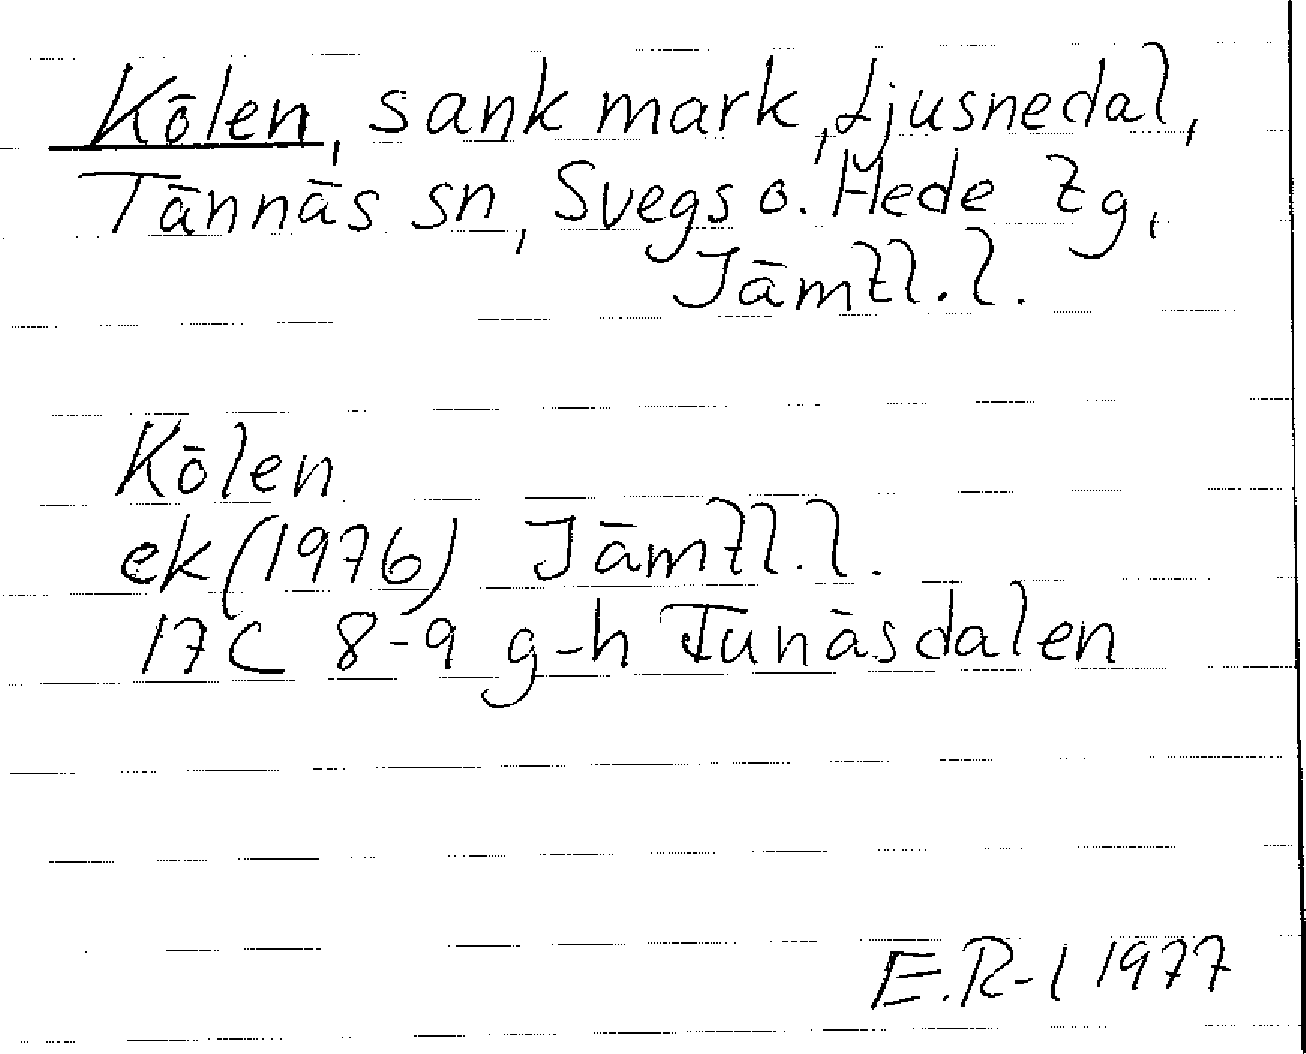 Kölen, sank mark, Ljusnedal,
Tännäs sn, Svegs o. Hede tg,
Jämtl.l.
Kölen
ek (1976) Jämtl.l.
17C 8-9 g-h Funäsdalen
E.R-l 1977